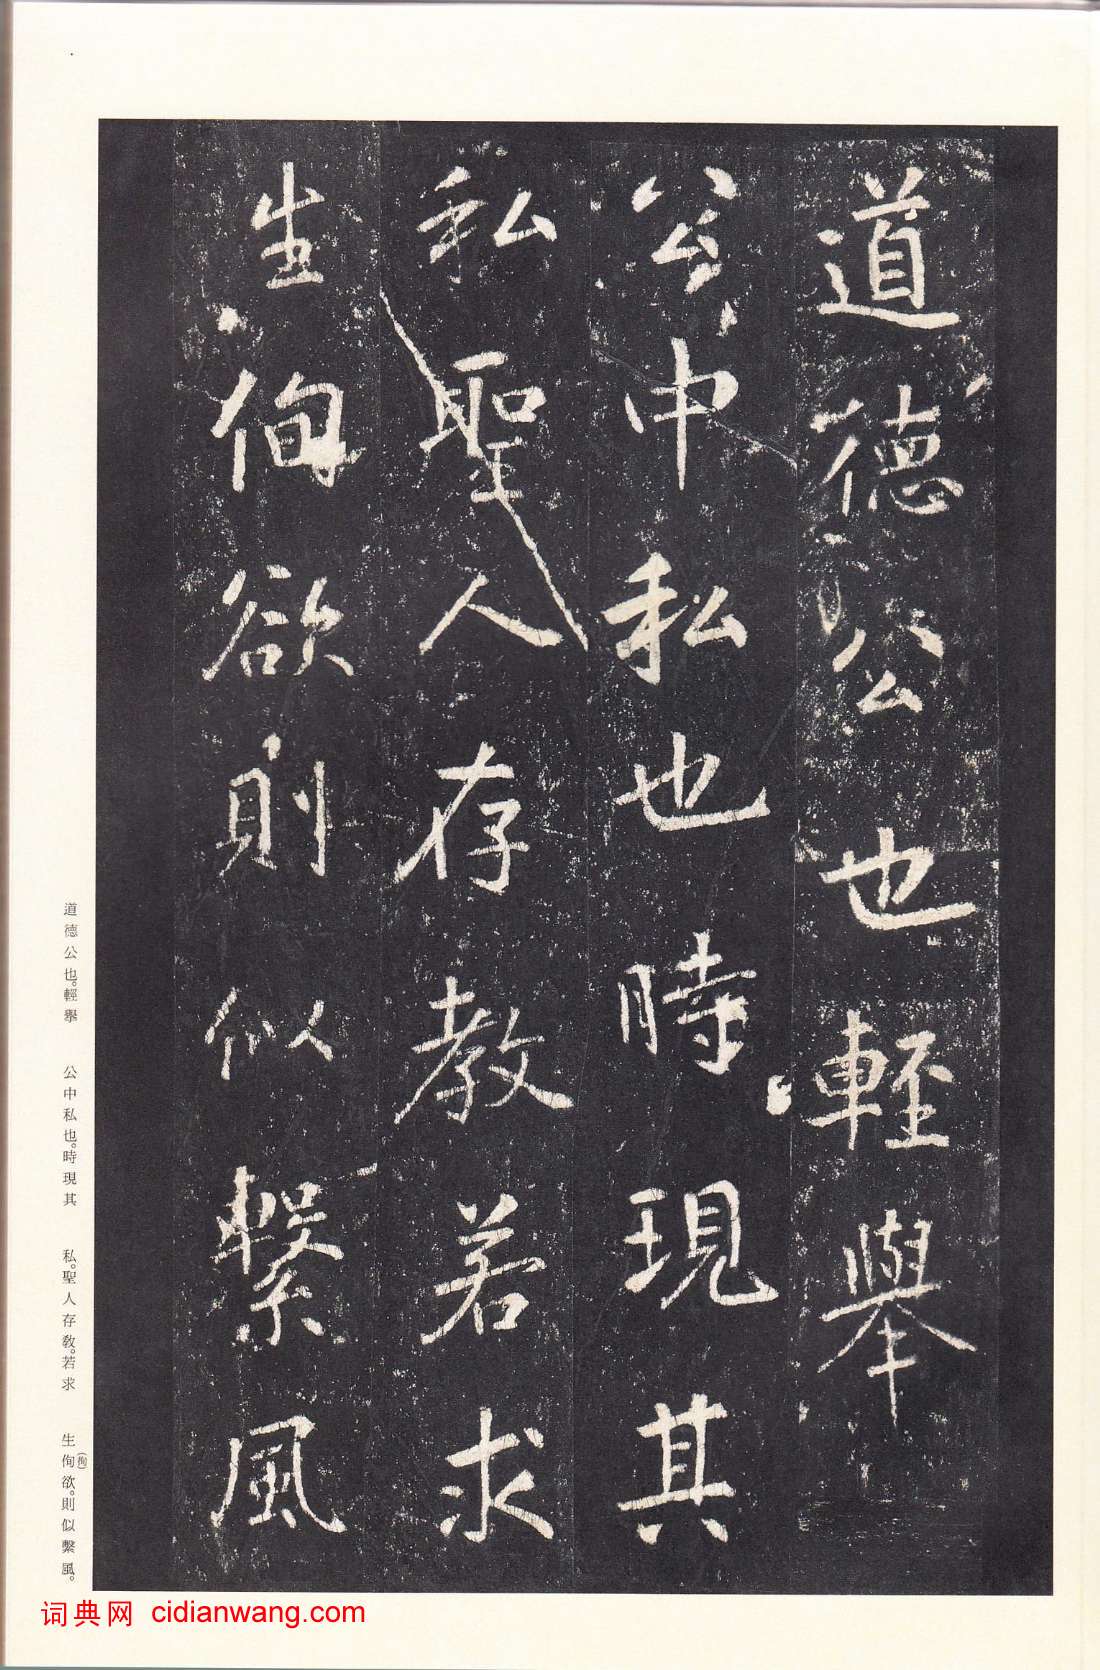 道德公也輕舉
公中私也時現其
私聖人存教若求
生侚欲則似繫風
道德公也。輕舉 公中私也。時現其 私。聖人存教。若求 生侚(徇)欲。則似繫風。
词典网 cidianwang.com